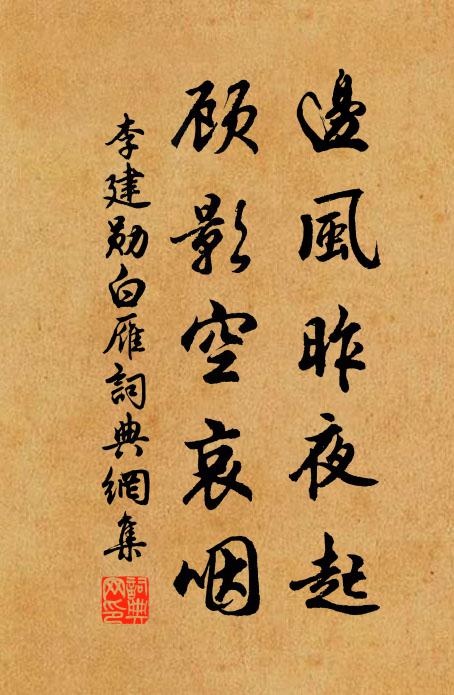 邊風昨夜起
顧影空哀咽
李建勋白雁詞典網集
詞典網印